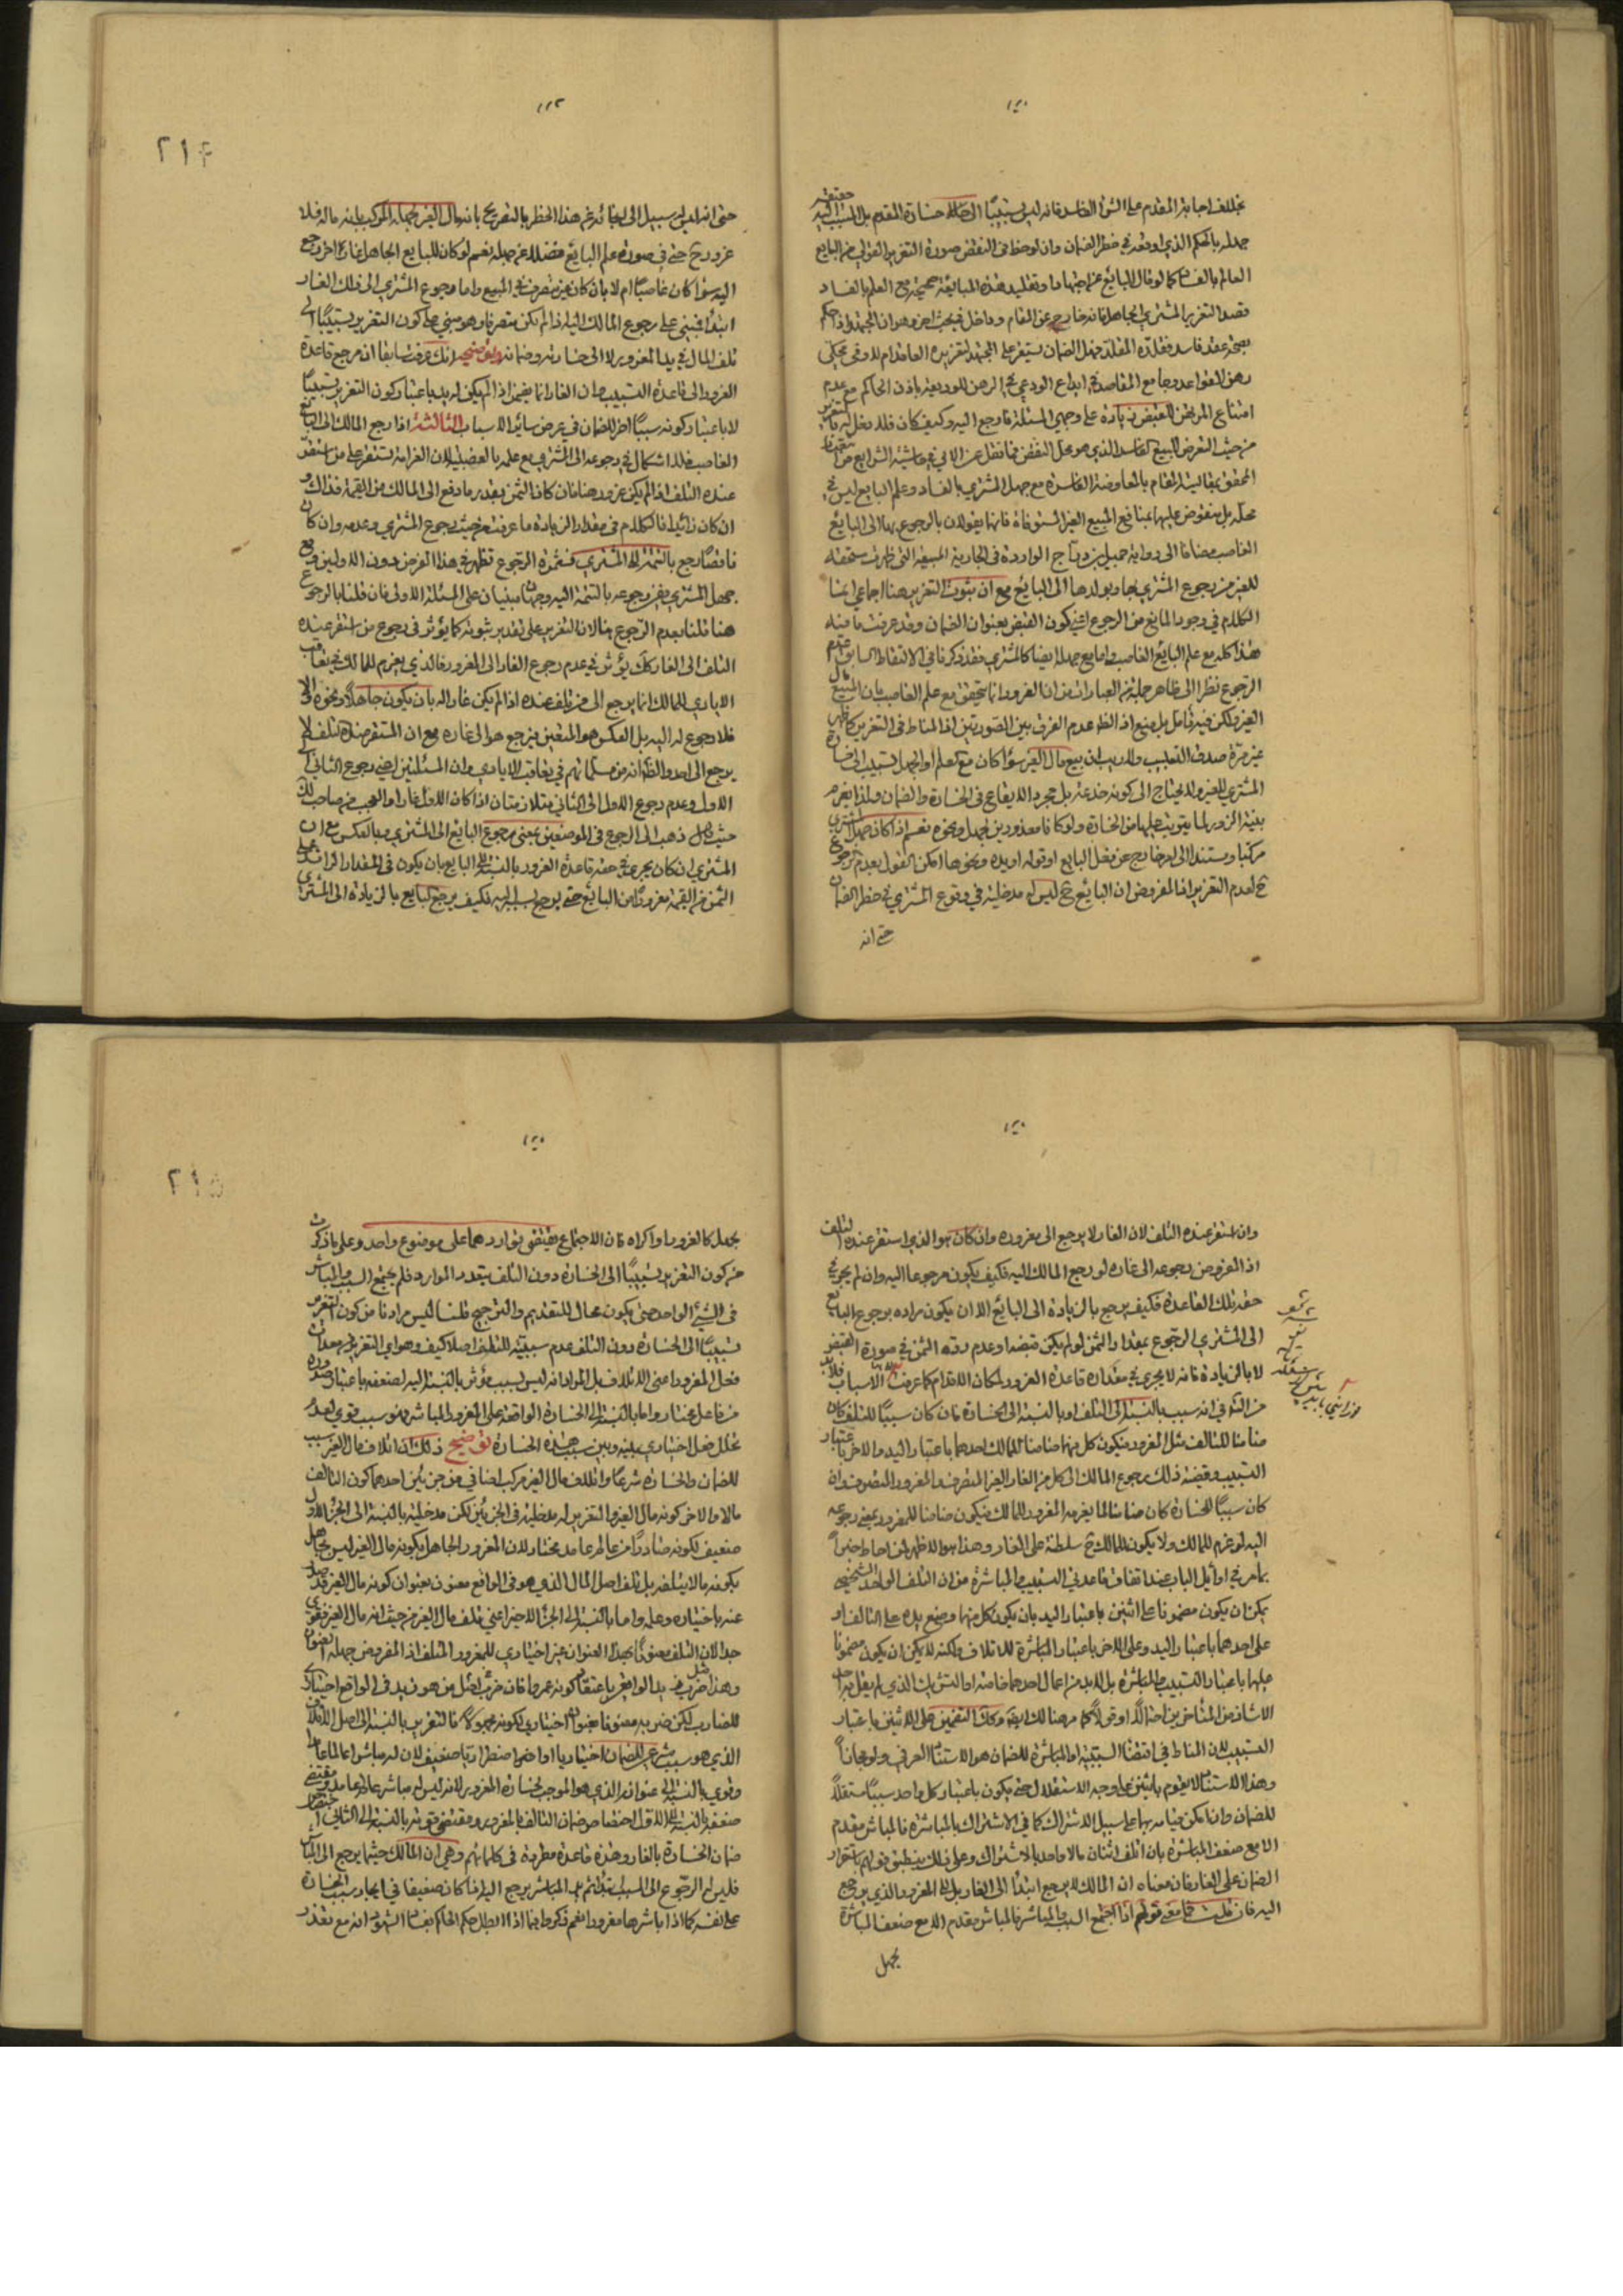 بخلاف اجابة المقدم على الشراء الفاسد فانه ليس تسبيبا الى خسارة المقدم بل السبب
جهله بالحكم الذي اوقعه في خطر الضمان وان لوحظ في النقض صورة التغرير القولي من البايع
العالم بالفساد كما لو قال البايع عن اجتهاد او تقليد هذه المبايعة صحيحة مع العلم بالفساد
قصد التغرير المشتري الجاهل فانه خارج عن المقام وداخل في بحث اخر وهو ان المجتهد اذا حكم
بصحة عقد فاسد فقلده المقلد فهل الضمان يستقر على المجتهد لتغريره العامد ام لا وقد حكى
الغاصب مضافا الى رواية جميل بن دراج الواردة في الجارية المبيعة التي ظهرت مستحقة
للغير من رجوع المشتري بها وبولدها الى البائع مع ان ثبوت التغرير هنا اجماعي انما
الكلام في وجود المانع من الرجوع اعني كون القبض بعنوان الضمان وقد عرفت ما فيه
هذا كله مع علم البائع الغاصب واما مع جهله ايضا كالمشتري فقد ذكرنا في الالتقاط السابق عدم
الرجوع نظرا الى ظاهر جملة من العبارات من ان الغرور انما يتحقق مع علم الغاصب بان المبيع
مال الغير ولكن فيه تأمل بل منع اذ الظ عدم الفرق بين الصورتين اذ المناط في التغرير كما ظهر
غير مرة صدق التسبيب ولا ريب ان بيع مال الغير سواء كان مع العلم او الجهل تسبيب الى خسارة
المشتري للغير ولا يحتاج الى كونه خدعة بل مجرد الايقاع في الخسارة والضمان ولذا يغرم
بقية الزور لما يترتب عليها من الخسارة ولو كانا معذورين لجهل ونحوه نعم اذا كان جهل المشتري
مركبا ومستندا الى امر خارج عن فعل البايع او قوله او يده ونحوها امكن القول بعدم الرجوع
ح لعدم التغرير اذ المفروض ان البائع ح ليس له مدخلية في وقوع المشتري في خطر الضمان
حتى انه
٢١٤
حتى انه ليس له سبيل الى ايقائه عن هذا الخطر بالتصريح بانه مال الغير لجهله المركب بانه ماله فلا
غرور ح حتى في صورة علم البائع فضلا عن جهله نعم لو كان للبايع الجاهل غار اخر رجع
اليه سواء كان غاصبا ام لا بان كان غير متصرف في المبيع واما رجوع المشتري الى ذلك الغار
ابتداء فيبنى على رجوع المالك اليه اذا لم يكن متصرفا وهو مبني على كون التغرير تسبيبا الى
تلف المال في يد المغرور لا الى خسارته وضمانه توضيحه انك عرفت سابقا ان مرجع قاعدة
الغرور الى قاعدة التسبيب وان الغار انما يضمن اذا لم يكن له يد باعتبار كون التغرير تسبيبا
لا باعتبار كونه سببا اخر للضمان في عرض سائر الاسباب الثالثة اذا رجع المالك الى البايع
الغاصب فلا اشكال في رجوعه الى المشتري مع علمه بالغصبية لان الغرامة تستقر على من استقر
عنده التلف اذا لم يكن غرور هنا فان كان الثمن بقدر ما دفع الى المالك من القيمة فذاك و
ان كان زائدا فالكلام في مقدار الزيادة ما عرفت من حيث رجوع المشتري وعدمه وان كان
ناقصا رجع بالتتمة الى المشتري فثمرة الرجوع تظهر في هذا الفرض دون الاولين ومع
جهل المشتري ففي رجوعه بالتتمة اليه وجهان مبنيان على المسئلة الاولى فان قلنا بالرجوع
هنا قلنا بعدم الرجوع هنا لان التغرير على تقدير ثبوته كما يؤثر في رجوع من استقر عنده
التلف الى الغار كك يؤثر في عدم رجوع الغار الى المغرور فالذي يغرم للمالك في تعاقب
الايادي للمالك انما يرجع الى من تلف عنده اذا لم يكن غارا له بان يكون جاهلا ونحوه والا
فلا رجوع له اليه بل العكس هو المتعين فيرجع هو الى غاره مع ان المستقر عنده التلف لا
يرجع الى احد والظ انه من مسلماتهم في تعاقب الايادي وان المسئلتين اعني رجوع الثاني الى
الاول وعدم رجوع الاول الى الثاني متلازمتان اذا كان الاول غارا والعجب من صاحب لك
حيث ذهب الى الرجوع في الموضعين بمعنى رجوع البائع الى المشتري وبالعكس مع ان
المشتري ان كان يجري في حقه قاعدة الغرور بالنسبة الى البايع بان يكون في المقدار الزائد على
الثمن من القيمة مغرورا من البائع حتى يرجع اليه فكيف يرجع البايع بالزيادة الى المشتري
وان استقر عنده التلف لان الغار لا يرجع الى مغروره وان كان هو الذي استقر عنده التلف
اذ المفروض رجوعه الى غاره لو رجع المالك اليه فكيف يكون مرجوعا اليه وان لم يجر في
حقه تلك القاعدة فكيف يرجع بالزيادة الى البائع الا ان يكون مراده برجوع البائع
الى المشتري الرجوع بمقدار الثمن لو لم يكن قبضه او عدم رده الثمن في صورة القبض
لا بالزيادة فانه لا يجري في مقداره قاعدة الغرور لمكان الاقدام كما عرفت
من انه سبب بالنسبة الى التلف او بالنسبة الى الخسارة فان كان سببا للتلف كان
ضامنا للتالف مثل المغرور فيكون كل منهما ضامنا للمالك احدهما باعتبار اليد والاخر باعتبار
التسبيب وقضية ذلك رجوع المالك الى كل من الغار الغير المتصرف والمغرور المتصرف وان
كان سببا للخسارة كان ضامنا لما يغرمه المغرور للمالك فيكون ضامنا للمغرور بمعنى رجوعه
اليه لو غرم للمالك ولا يكون للمالك ح سلطنة على الغار وهذا هو الاظهر لمن احاط خبرا
بما مر في اوائل الباب عند اتفاق قاعدتي التسبيب والمباشرة من ان التلف الواحد الشخصي
يمكن ان يكون مضمونا على اثنين باعتبار اليد بان يكون كل منهما وضع يده على التالف او
على احدهما باعتبار اليد وعلى الاخر باعتبار المباشرة للاتلاف ولكنه لا يمكن ان يكون مضمونا
عليهما باعتبار التسبيب والمباشرة بل لا بد من اعمال احدهما خاصة او التشريك الذي لم يقل به احد
الا شاذ من المتأخرين احتمالا او قولا كما مر هناك ايضا وكك التضمين على الاثنين باعتبار
التسبيب لان المناط في اقتضاء السببية او المباشرة للضمان هو الاستناد العرفي ولو مجازا
وهذا الاستناد لا يقوم باثنين على وجه الاستقلال حتى يكون باعتبار كل واحد سببا مستقلا
للضمان وانما يمكن قيامه بهما على سبيل الاشتراك كما في الاشتراك بالمباشرة فالمباشر مقدم
الا مع ضعف المباشرة بان اتلف اثنان مالا واحدا بالاشتراك وعلى ذلك ينطبق قولهم باستقرار
الضمان على الغار فان معناه ان المالك لا يرجع ابتداء الى الغار بل الى المغرور والذي يرجع
اليه فان قلت فما معنى قولهم اذا اجتمع السبب والمباشر فالمباشر مقدم الا مع ضعف المباشرة
بجهل
٢١٥
بجهل كالغرور او اكراه فان الاجتماع يقتضي تواردهما على موضوع واحد وعلى ما ذكرت
من كون التغرير تسبيبا الى الخسارة دون التلف يتعدد الموارد فلم يجتمع السبب والمباشر
في الشيء الواحد حتى يكون محالا للتقديم والترجيح قلنا ليس مرادنا من كون التغرير
تسبيبا الى الخسارة دون التلف عدم سببيته للتلف اصلا كيف وهو اي التغرير من معدات
فعل المغرور اعني الاتلاف بل المراد انه ليس بسبب مؤثر بالنسبة اليه لضعفه باعتبار صدوره
من فاعل مختار واما بالنسبة الى الخسارة الواقعة على المغرور المباشر فهو سبب قوي لعدم
تخلل فعل اختياري بينه وبين هذه الخسارة توضيح ذلك ان اتلاف مال الغير سبب
للضمان والخسارة شرعا واتلاف مال الغير مركب اضافي من جزئين احدهما كون التالف
مالا والاخر كونه مال الغير والتغرير له مدخلية في الجزئين لكن مدخليته بالنسبة الى الجزء الاول
ضعيف لكونه صادرا من عالم عامد مختار لان المغرور الجاهل بكونه مال الغير ليس بجاهل
بكونه مالا يتلفه بل تلف اصل المال الذي هو في الواقع معنون بعنوان كونه مال الغير قد صدر
عنه باختياره وعلمه واما بالنسبة الى الجزء الاخير اعني تلف مال الغير من حيث انه مال الغير فقوي
جدا لان التلف معنونا بهذا العنوان غير اختياري للمغرور المتلف اذ المفروض جهله بالعنوان
وهذا مثل ضرب زيد الواقع باعتقاد كونه عمروا فان ضرب اصل من هو زيد في الواقع اختياري
للضارب لكن ضربه معنونا بعنوانه اختياري لكونه مجهولا فالتغرير بالنسبة الى اصل الاتلاف
الذي هو سبب شرعي للضمان اختياريا او اضطراريا ضعيف لان له مباشرا عالما عامدا
وقوي بالنسبة الى عنوانه الذي هو الموجب لخسارة المغرور لانه ليس له مباشر عالم عامد ومقتضى
ضعفه بالنسبة الى الاول اختصاص ضمان التالف بالمغرور ومقتضى قوته بالنسبة الى الثاني اختصاص
ضمان الخسارة بالغار وهذه قاعدة مطردة في كلماتهم وهي ان المالك حيثما يرجع الى المباشر
فليس له الرجوع الى السبب ابتداء ثم المباشر يرجع اليه اذا كان ضعيفا في ايجاد سبب الخسارة
على نفسه كما اذا باشرها مغرورا نعم ذكروا فيما اذا بطل حكم الحاكم بفساد الشهود انه مع تعذر